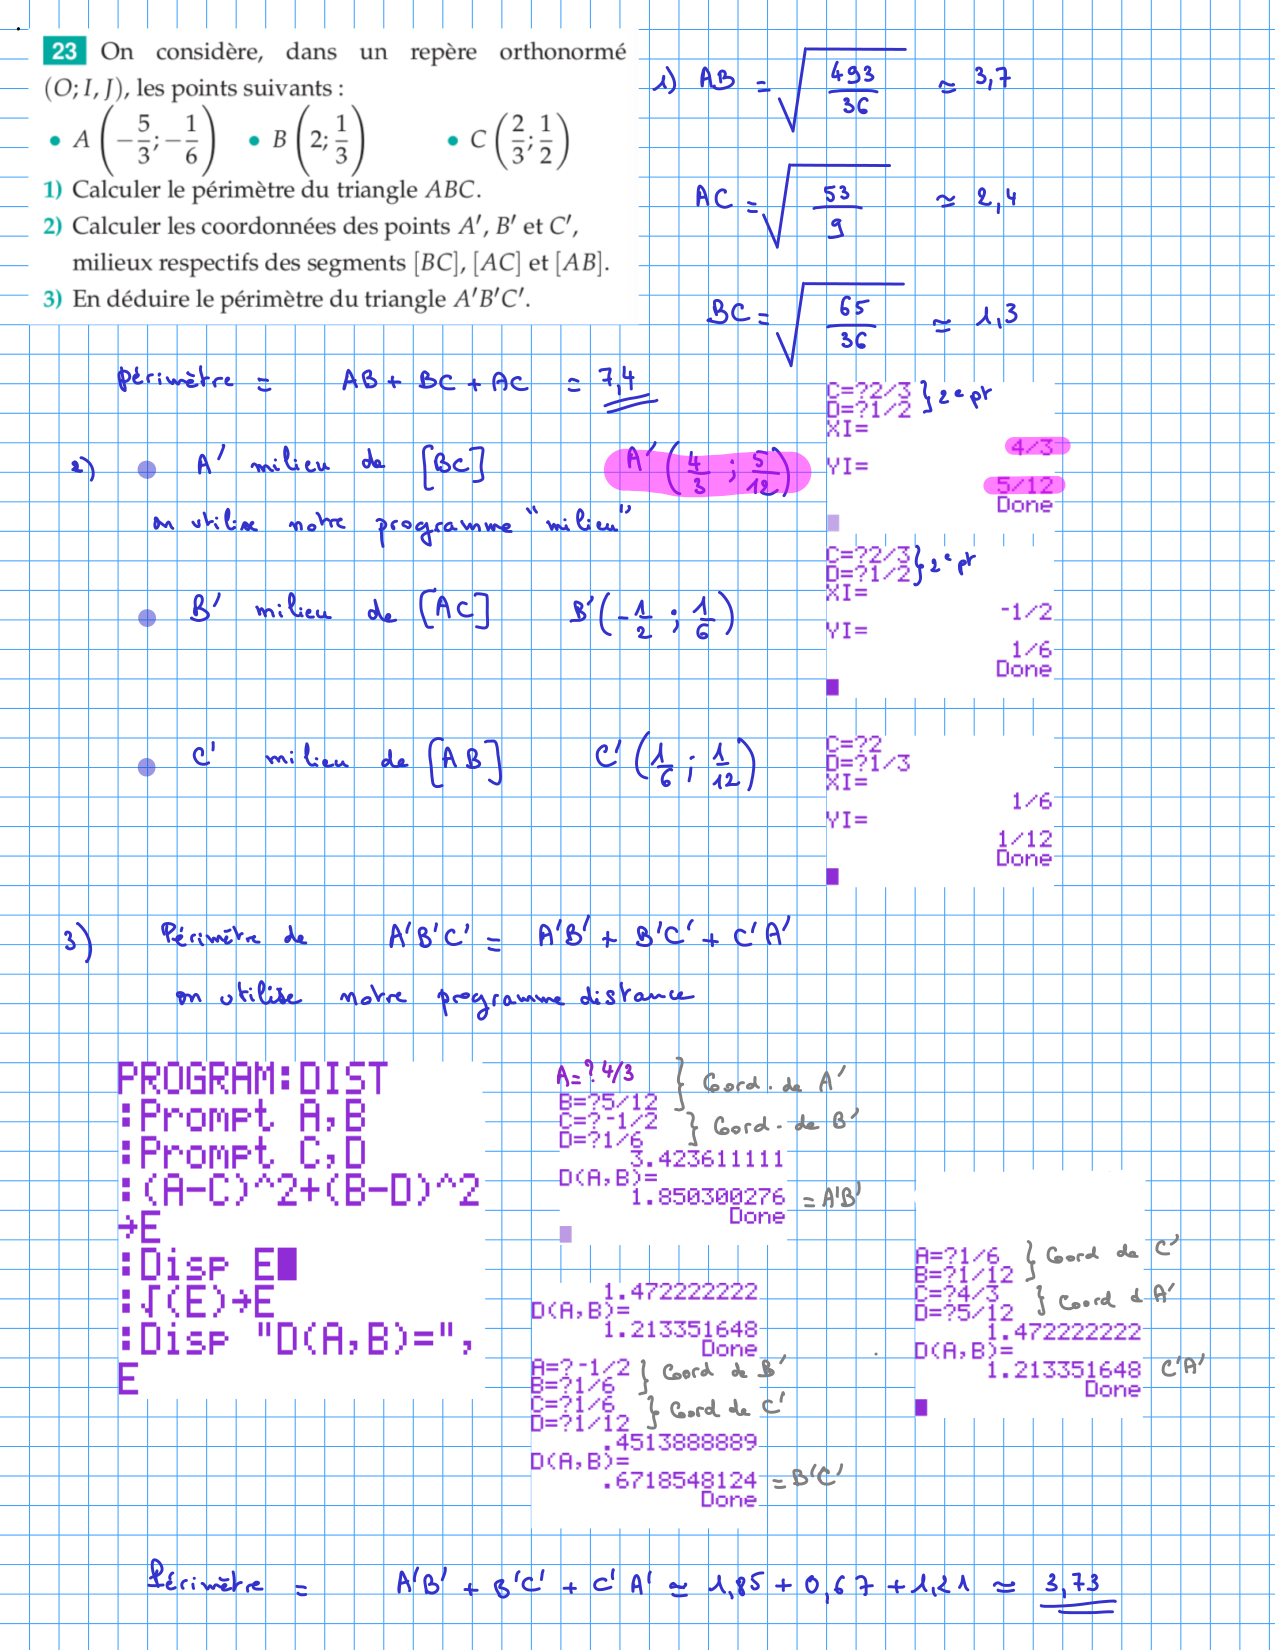 23 On considère, dans un repère orthonormé
(O; I, J), les points suivants :
• A (−5/3; −1/6) • B (2; 1/3) • C (2/3; 1/2)
1) Calculer le périmètre du triangle ABC.
2) Calculer les coordonnées des points A′, B′ et C′,
milieux respectifs des segments [BC], [AC] et [AB].
3) En déduire le périmètre du triangle A′B′C′.
1) AB = √(493/36) ≃ 3,7
AC = √(53/9) ≃ 2,4
BC = √(65/36) ≃ 1,3
périmètre = AB + BC + AC = 7,4
2) • A' milieu de [BC] A' (4/3 ; 5/12)
on utilise notre programme "milieu"
C=?2/3
D=?1/2 } 2e pt
XI=
4/3
YI=
5/12
Done
• B' milieu de [AC] B' (-1/2 ; 1/6)
C=?2/3
D=?1/2 } 2e pt
XI=
-1/2
YI=
1/6
Done
• C' milieu de [AB] C' (1/6 ; 1/12)
C=?2
D=?1/3
XI=
1/6
YI=
1/12
Done
3) Périmètre de A'B'C' = A'B' + B'C' + C'A'
on utilise notre programme distance
PROGRAM:DIST
:Prompt A,B
:Prompt C,D
:(A-C)^2+(B-D)^2
→E
:Disp E
:√(E)→E
:Disp "D(A,B)=",
E
A=?4/3
B=?5/12 } Coord. de A'
C=?-1/2
D=?1/6 } Coord. de B'
3.423611111
D(A,B)=
1.850300276 = A'B'
Done
1.472222222
D(A,B)=
1.213351648
Done
A=?-1/2
B=?1/6 } Coord de B'
C=?1/6
D=?1/12 } Coord de C'
.4513888889
D(A,B)=
.6718548124 = B'C'
Done
A=?1/6
B=?1/12 } Coord de C'
C=?4/3
D=?5/12 } Coord d A'
1.472222222
D(A,B)=
1.213351648 C'A'
Done
Périmètre = A'B' + B'C' + C'A' ≃ 1,85 + 0,67 + 1,21 ≃ 3,73